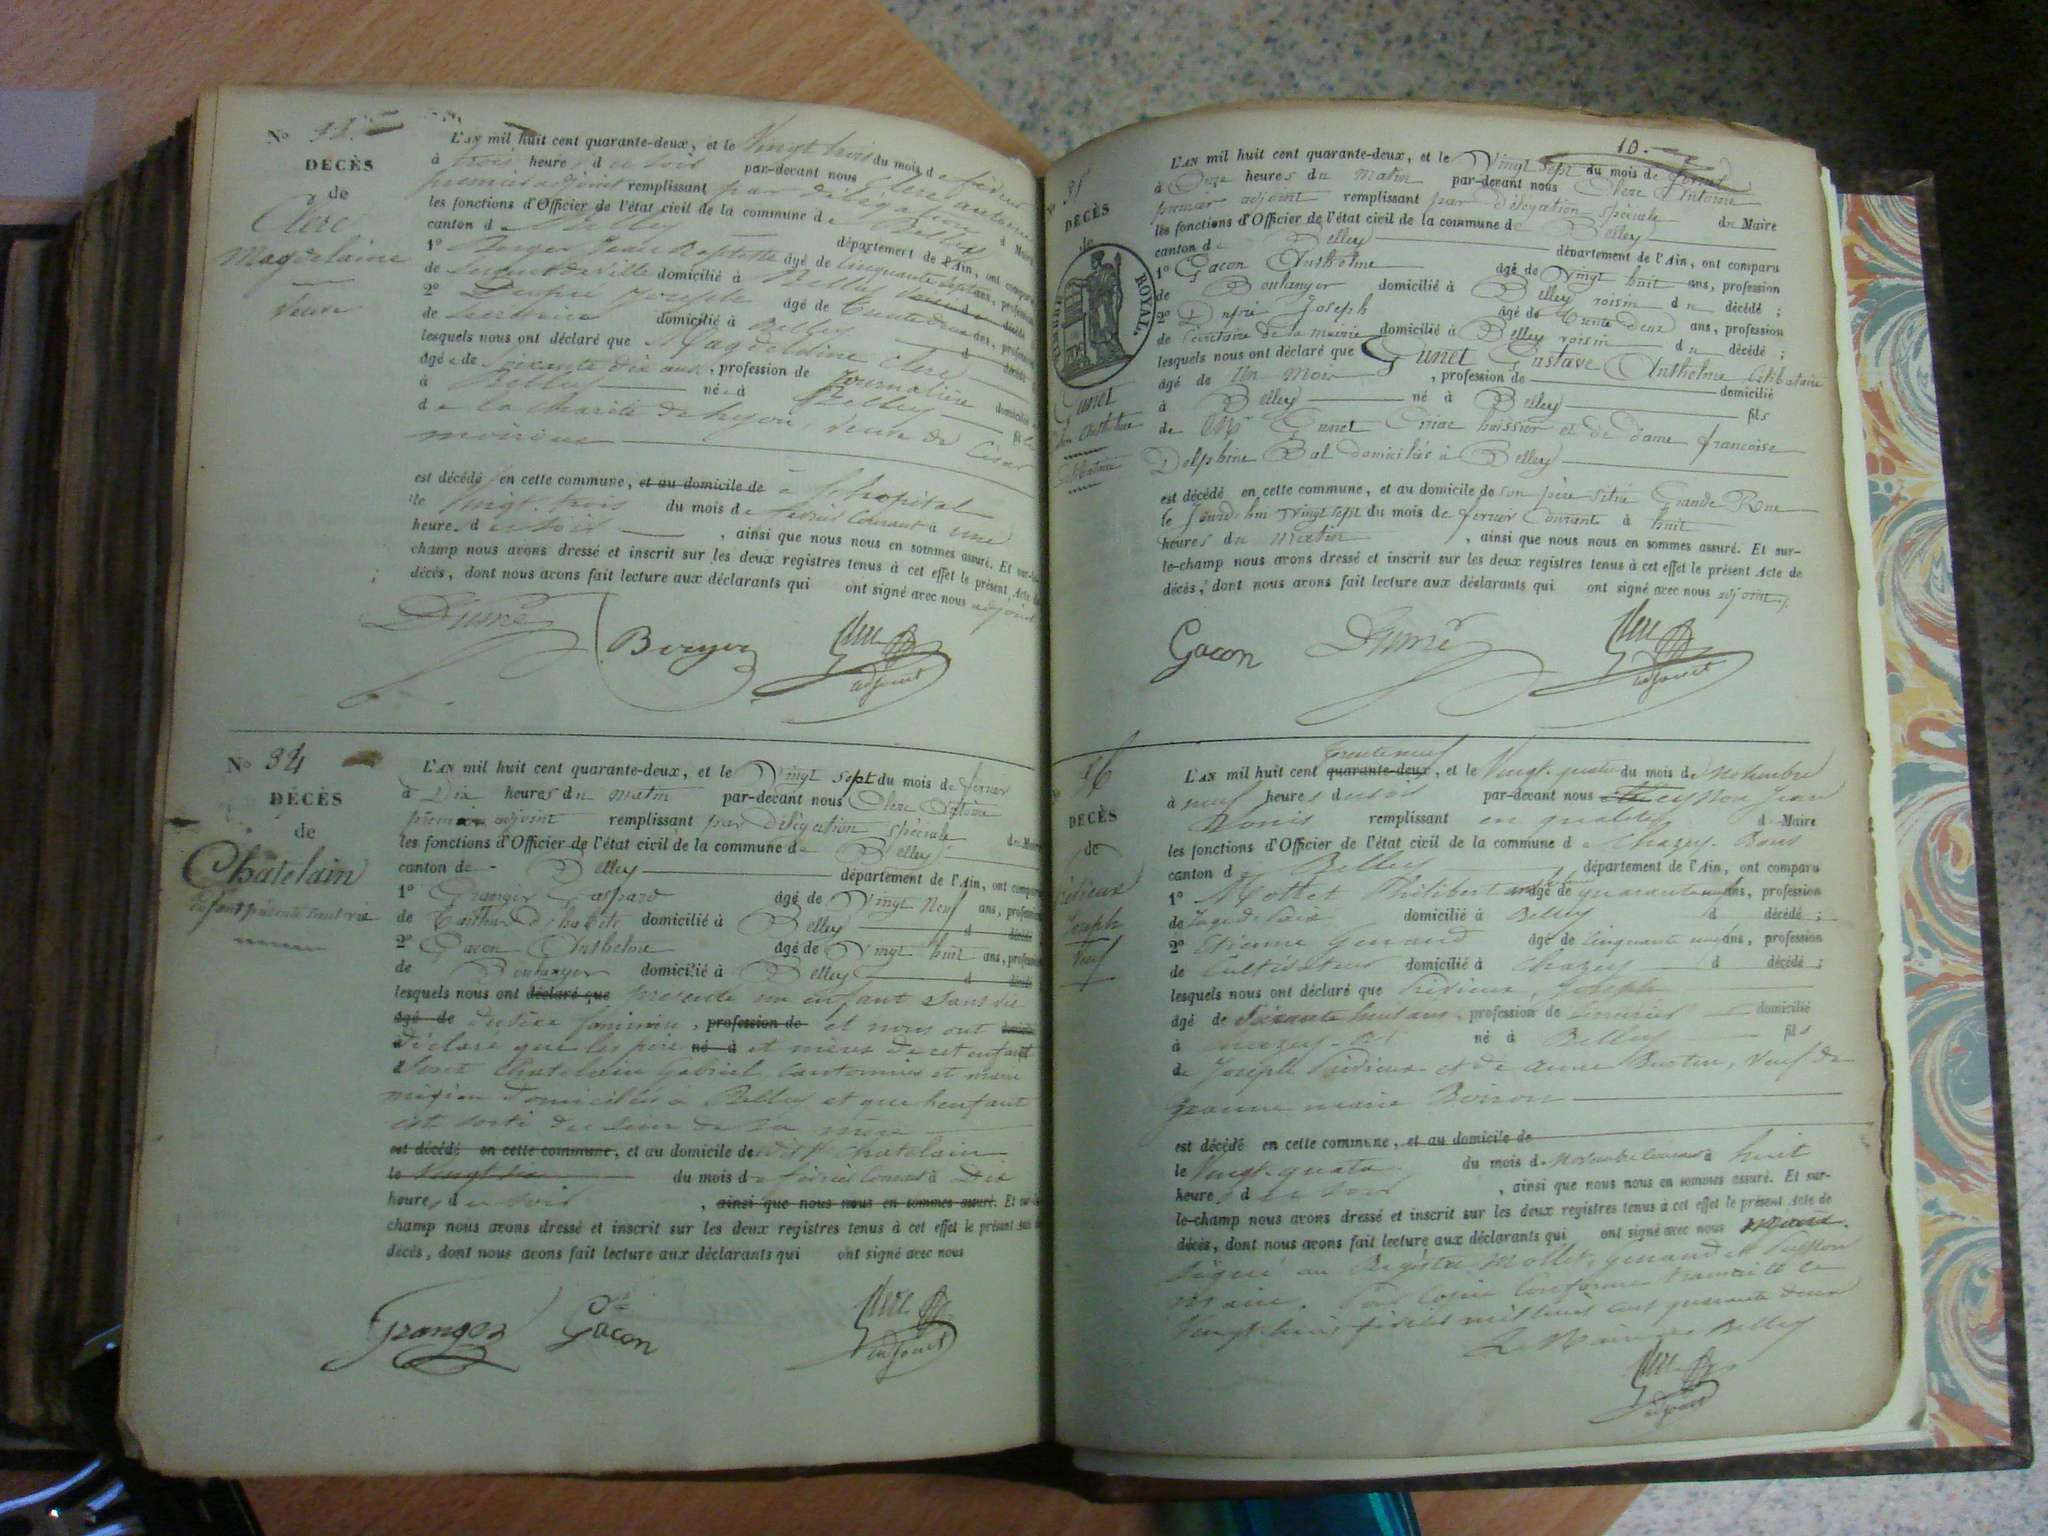 N° 33
DÉCÈS
de
Clerc
Magdelaine
veuve
L'AN mil huit cent quarante-deux, et le Vingt trois du mois de février
à trois heures du soir par-devant nous Clerc antoine
premier adjoint remplissant par délégation
les fonctions d'Officier de l'état civil de la commune de Belley d Maire
canton de Belley département de l'Ain, ont comparu
1° Berger Jean Baptiste âgé de cinquante sept ans, profession
de Sergent de Ville domicilié à Belley voisin d décédé
2° Dupré Joseph âgé de Trente deux ans, profession
de Secrétaire domicilié à Belley d décédé
lesquels nous ont déclaré que Magdelaine Clerc
âgée de soixante dix ans, profession de Journalière domicilié
à Belley née à Belley fille
de la charité de Lyon, veuve de César
est décédé en cette commune, et au domicile de à l'hopital
le Vingt-trois du mois de février courant à une
heure du soir, ainsi que nous nous en sommes assuré. Et sur-le-
champ nous avons dressé et inscrit sur les deux registres tenus à cet effet le présent Acte de
décès, dont nous avons fait lecture aux déclarants qui ont signé avec nous adjoint
Dupré Berger Clerc
adjoint
N° 34
DÉCÈS
de
Chatelain
Enfant présenté sans vie
L'AN mil huit cent quarante-deux, et le Vingt sept du mois de fevrier
à Dix heures du matin par-devant nous Clerc Antoine
premier adjoint remplissant par délégation spéciale du Maire
les fonctions d'Officier de l'état civil de la commune de Belley
canton de Belley département de l'Ain, ont comparu
1° Granger Gaspard âgé de Vingt Neuf ans, profession
de domicilié à Belley d décédé
2° Gacon Anthelme âgé de Vingt huit ans, profession
de Boulanger domicilié à Belley d décédé
lesquels nous ont déclaré que présenté un enfant sans vie
âgé de du sexe féminin, profession de et nous ont
déclaré que les père né à et mère de cet enfant
sont Chatelain Gabriel, Cantonnier et marie
domiciliés à Belley et que l'enfant
est sorti du sein de sa mère
est décédé en cette commune, et au domicile de dit Chatelain
le Vingt six du mois de février courant à Dix
heures du soir, ainsi que nous nous en sommes assuré. Et sur-le-
champ nous avons dressé et inscrit sur les deux registres tenus à cet effet le présent Acte de
décès, dont nous avons fait lecture aux déclarants qui ont signé avec nous
Granger Gacon Clerc
adjoint
10.
35
DÉCÈS
de
TIMBRE ROYAL
Gunet
Anthelme
Célibataire
L'AN mil huit cent quarante-deux, et le Vingt sept du mois de fevrier
à Onze heures du matin par-devant nous Clerc Antoine
premier adjoint remplissant par délégation spéciale du Maire
les fonctions d'Officier de l'état civil de la commune de Belley
canton de Belley département de l'Ain, ont comparu
1° Gacon Anthelme âgé de Vingt huit ans, profession
de Boulanger domicilié à Belley voisin du décédé;
2° Dupré Joseph âgé de Trente deux ans, profession
de Secrétaire de la mairie domicilié à Belley voisin du décédé;
lesquels nous ont déclaré que Gunet Gustave Anthelme Célibataire
âgé de Un mois, profession de domicilié
à Belley né à Belley fils
de Mr Gunet Ciriac huissier et de dame françoise
Delphine Bal domiciliés à Belley
est décédé en cette commune, et au domicile de son père situé Grande Rue
le Jourd'hui vingt sept du mois de fevrier Courant à huit
heures du matin, ainsi que nous nous en sommes assuré. Et sur-
le-champ nous avons dressé et inscrit sur les deux registres tenus à cet effet le présent Acte de
décès, dont nous avons fait lecture aux déclarants qui ont signé avec nous adjoint.
Gacon Dupré Clerc
adjoint
36
DÉCÈS
de
Joseph
Veuf
trente neuf
L'AN mil huit cent quarante-deux, et le Vingt-quatre du mois de Novembre
à neuf heures du soir par-devant nous Jean
Louis remplissant en qualité d Maire
les fonctions d'Officier de l'état civil de la commune de Chazey-Bons
canton d Belley département de l'Ain, ont comparu
1° Mollet Philibert âgé de quarante ans, profession
de Juge de Paix domicilié à Belley d décédé;
2° Etienne Genaud âgé de cinquante ans, profession
de Cultivateur domicilié à Chazey d décédé;
lesquels nous ont déclaré que Joseph
âgé de Soixante huit ans, profession de domicilié
à Chazey né à Belley fils
de Joseph et de Anne, Veuf de
Jeanne marie Boiron
est décédé en cette commune, et au domicile de
le Vingt-quatre du mois de Novembre courant à huit
heures du soir, ainsi que nous nous en sommes assuré. Et sur-
le-champ nous avons dressé et inscrit sur les deux registres tenus à cet effet le présent Acte de
décès, dont nous avons fait lecture aux déclarants qui ont signé avec nous
Signé au Registre Mollet, genaud et
maire. Pour Copie Conforme transcrite ce
Vingt-huit février mil huit cent quarante deux
Le Maire de Belley
Clerc
adjoint